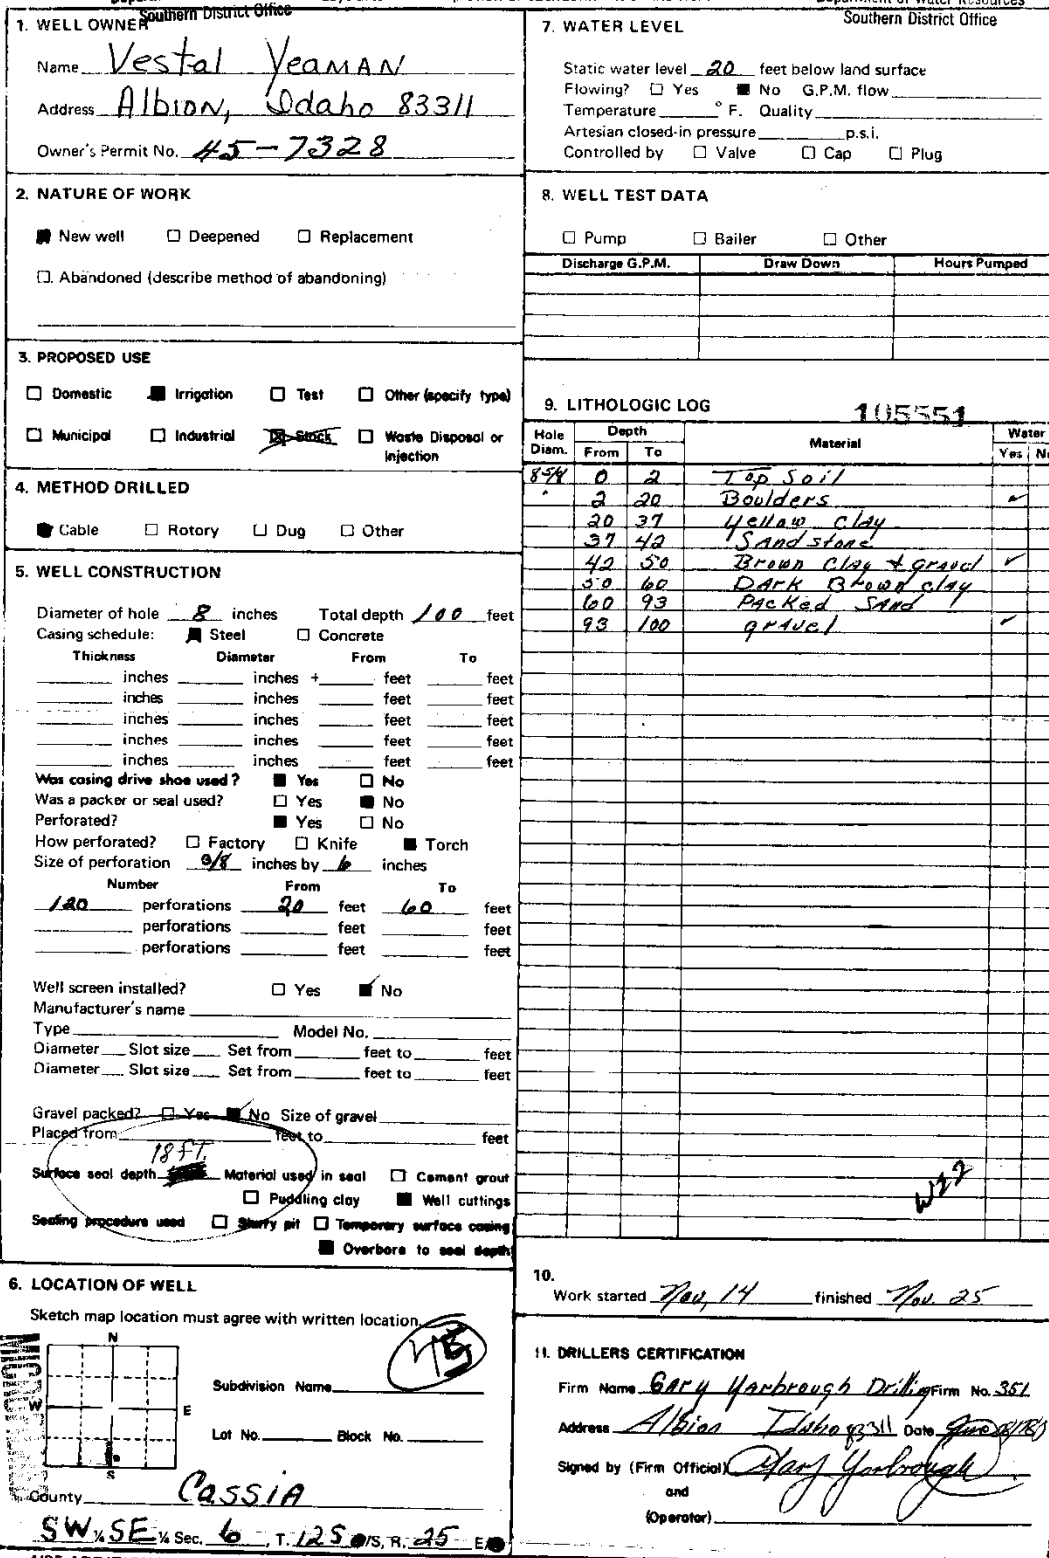 Southern District Office
Department of Water Resources
Southern District Office
1. WELL OWNER
Name Vestal YeaMAN
Address Albion, Idaho 83311
Owner's Permit No. 45-7328
2. NATURE OF WORK
New well Deepened Replacement
Abandoned (describe method of abandoning)
3. PROPOSED USE
Domestic Irrigation Test Other (specify type)
Municipal Industrial Stock Waste Disposal or
Injection
4. METHOD DRILLED
Cable Rotory Dug Other
5. WELL CONSTRUCTION
Diameter of hole 8 inches Total depth 100 feet
Casing schedule: Steel Concrete
Thickness Diameter From To
inches inches + feet feet
inches inches feet feet
inches inches feet feet
inches inches feet feet
inches inches feet feet
Was casing drive shoe used? Yes No
Was a packer or seal used? Yes No
Perforated? Yes No
How perforated? Factory Knife Torch
Size of perforation 3/8 inches by 6 inches
Number From To
120 perforations 20 feet 60 feet
perforations feet feet
perforations feet feet
Well screen installed? Yes No
Manufacturer's name
Type Model No.
Diameter Slot size Set from feet to feet
Diameter Slot size Set from feet to feet
Gravel packed? Yes No Size of gravel
Placed from feet to feet
18 FT.
Surface seal depth Material used in seal Cement grout
Puddling clay Well cuttings
Sealing procedure used Slurry pit Temporary surface casing
Overbore to seal depth
6. LOCATION OF WELL
Sketch map location must agree with written location.
45
N
W E
S
Subdivision Name
Lot No. Block No.
County CASSIA
SW ¼ SE ¼ Sec. 6, T. 12 S /S, R. 25 E
7. WATER LEVEL
Static water level 20 feet below land surface
Flowing? Yes No G.P.M. flow
Temperature ° F. Quality
Artesian closed-in pressure p.s.i.
Controlled by Valve Cap Plug
8. WELL TEST DATA
Pump Bailer Other
Discharge G.P.M. Draw Down Hours Pumped
9. LITHOLOGIC LOG 105551
Hole Depth Material Water
Diam. From To Yes
8 5/8 0 2 Top Soil
2 20 Boulders ✓
20 37 Yellow Clay
37 42 SAndstone
42 50 Brown Clay + gravel ✓
50 60 DArk Brown clay
60 93 PAcKed SAnd
93 100 grAvel ✓
W22
10.
Work started Nov, 14 finished Nov. 25
11. DRILLERS CERTIFICATION
Firm Name GAry Yarbrough Drilling Firm No. 351
Address Albion Idaho 83311 Date
Signed by (Firm Official) Gary Yarbrough
and
(Operator)